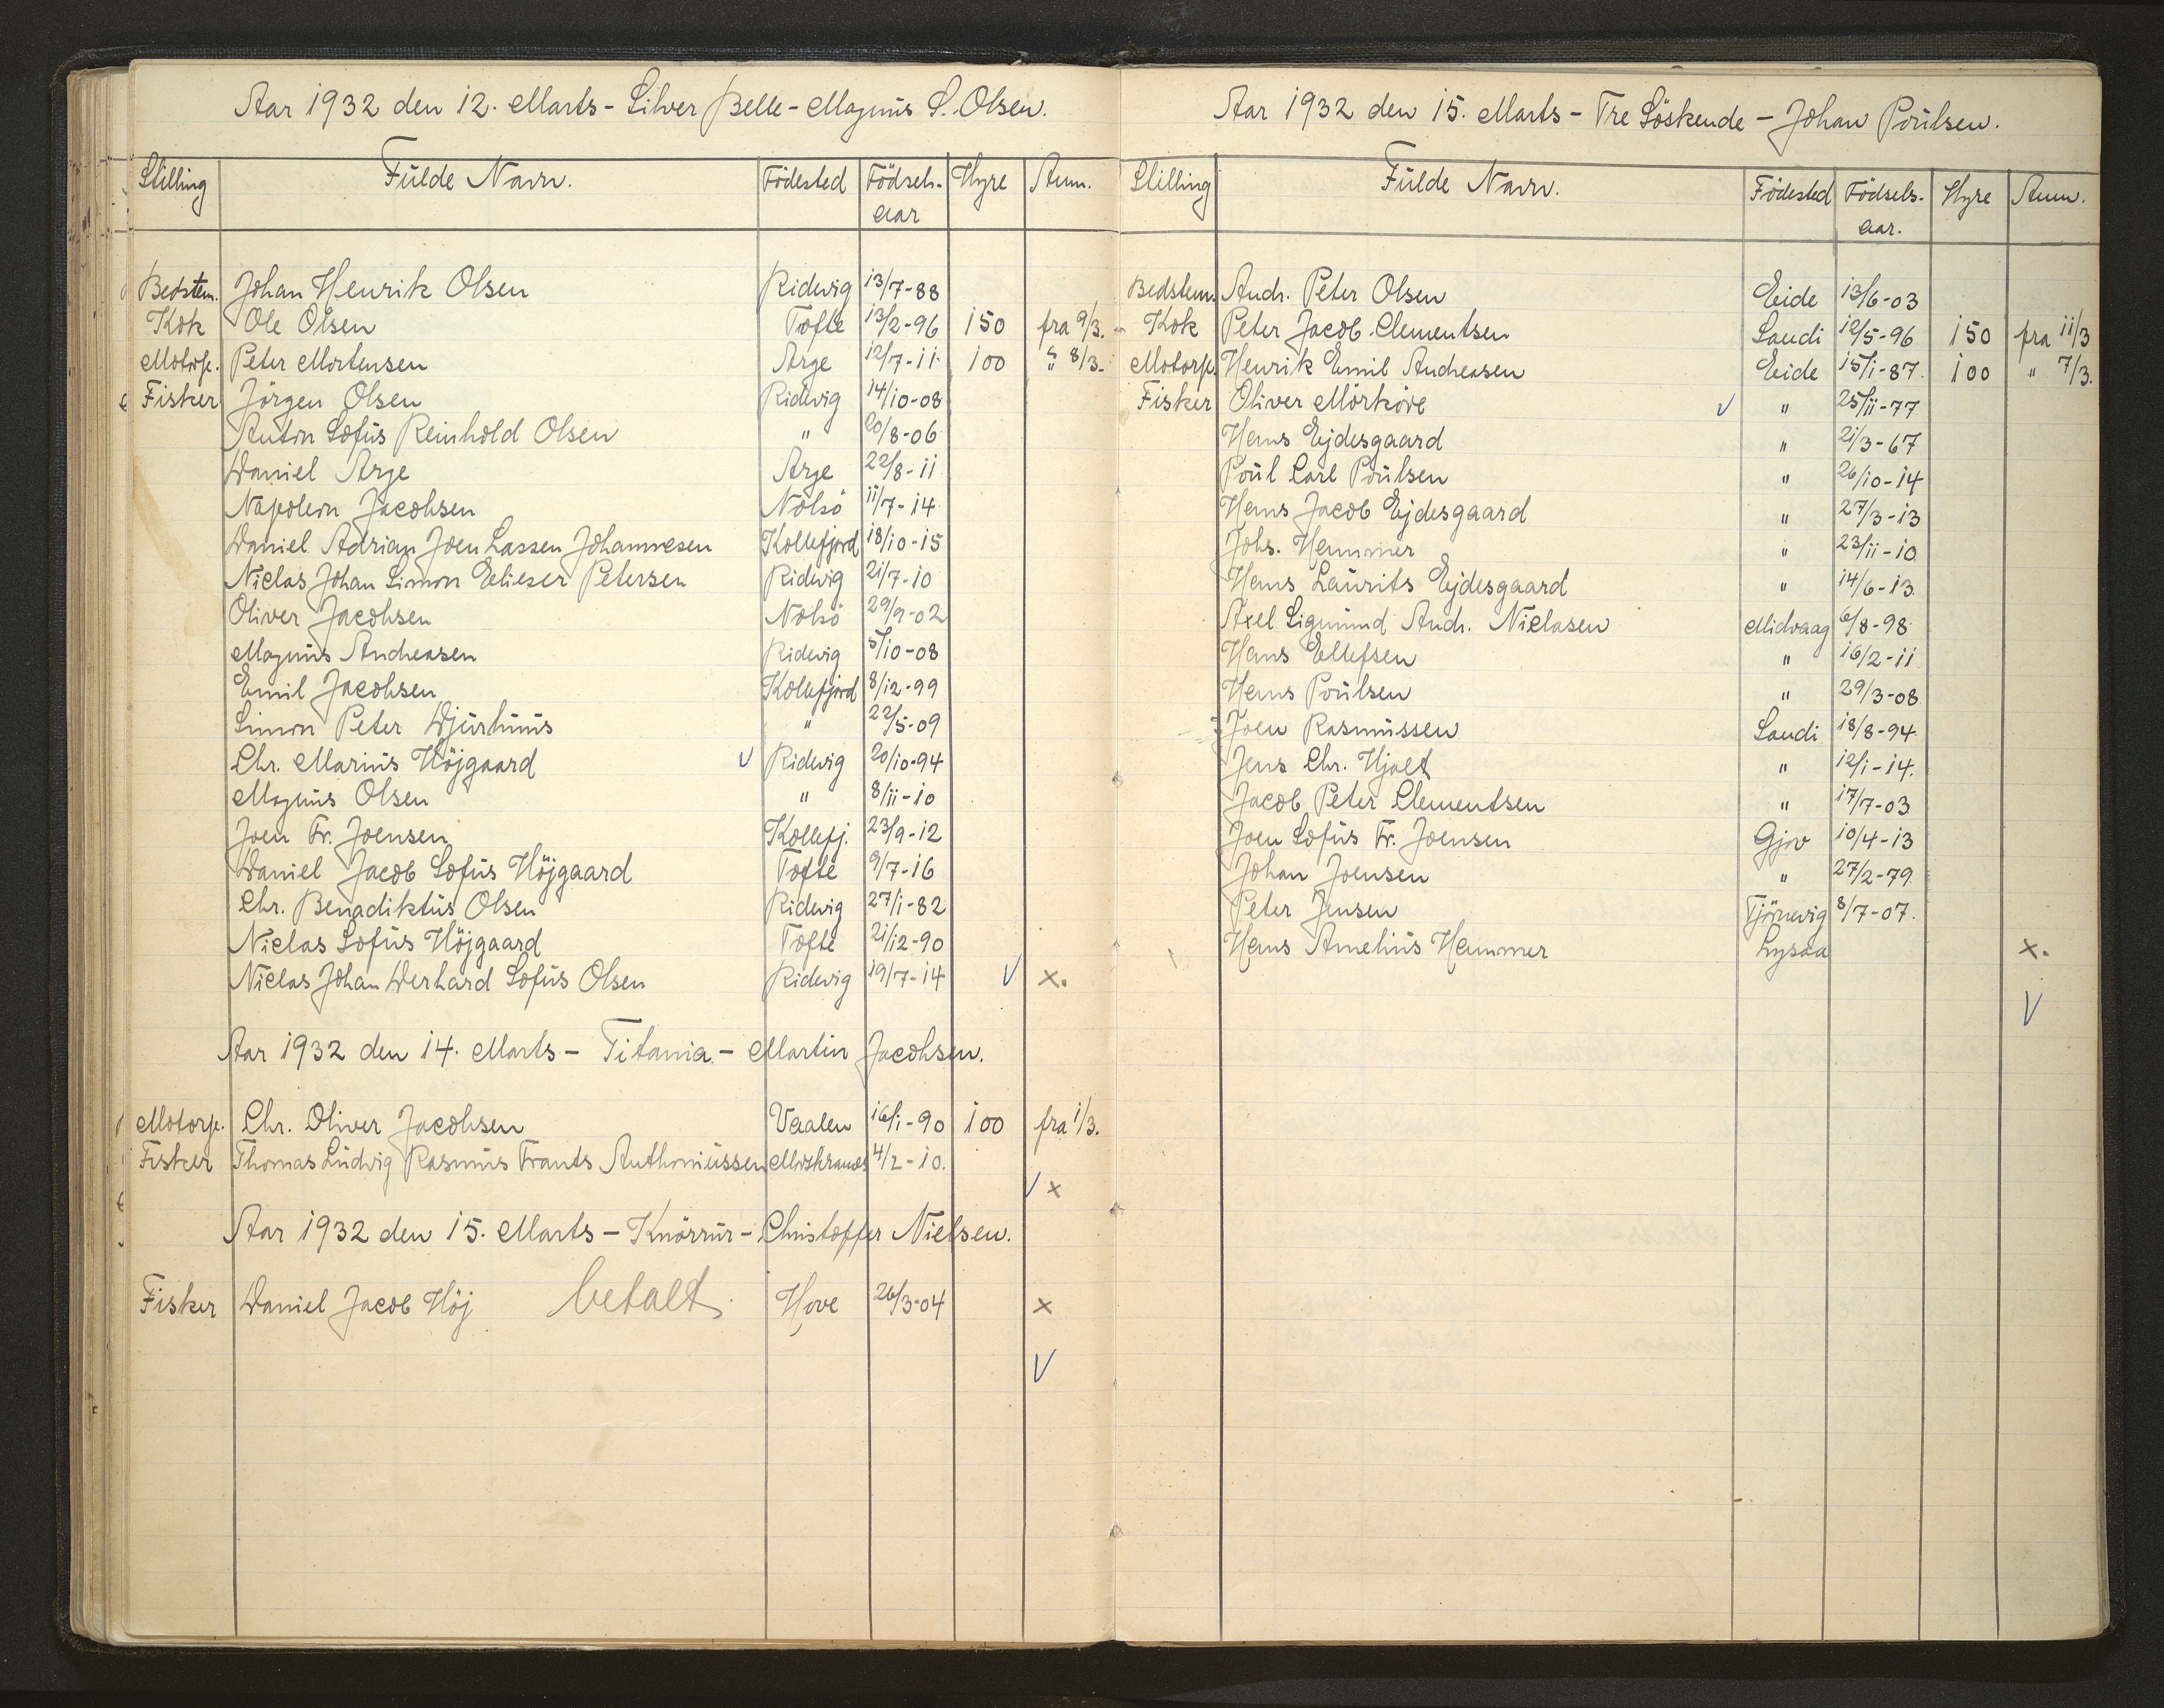 Aar 1932 den 12. Marts - Silver Belle - Magnus S. Olsen.
Stilling Fulde Navn. Födested Födsels- aar Hyre Anm.
Bedstem. Johan Henrik Olsen Ridevig 13/7-88
Kok Ole Olsen Tofte 13/2-96 150 fra 9/3.
Motorp. Peter Mortensen Arge 12/7-11 100 " 8/3.
Fisker Jörgen Olsen Ridevig 14/10-08
Anton Sofus Reinhold Olsen " 20/8-06
Daniel Arge Arge 22/8-11
Napoleon Jacobsen Nolsö 11/7-14
Daniel Adrian Joen Lassen Johannesen Kollefjord 18/10-15
Niclas Johan Simon Elieser Petersen Ridevig 21/7-10
Oliver Jacobsen Nolsö 29/9-02
Magnus Andreasen Ridevig 5/10-08
Emil Jacobsen Kollefjord 8/12-99
Simon Peter Djurhuus " 22/5-09
Chr. Marius Höjgaard V Ridevig 20/10-94
Magnus Olsen " 8/11-10
Joen Fr. Joensen Kollefj. 23/9-12
Daniel Jacob Sofus Höjgaard Tofte 9/7-16
Chr. Benadiktus Olsen Ridevig 27/1-82
Niclas Sofus Höjgaard Tofte 21/12-90
Niclas Johan Werhard Sofus Olsen Ridevig 19/7-14 V x.
Aar 1932 den 14. Marts - Titania - Martin Jacobsen.
Motorp. Chr. Oliver Jacobsen Vaalen 16/1-90 100 fra 1/3.
Fisker Thomas Ludvig Rasmus Frants Anthoniussen 4/2-10.
V x
Aar 1932 den 15. Marts - Knörrur - Christoffer Nielsen.
Fisker Daniel Jacob Höj betalt. Hove 26/3-04 x
V
Aar 1932 den 15. Marts - Tre Söskende - Johan Poulsen.
Stilling Fulde Navn. Födested Födsels- aar. Hyre Anm.
Bedstem. Andr. Peter Olsen Eide 13/6-03
Kok Peter Jacob Clementsen Sandi 12/5-96 150 fra 11/3
Motorp. Henrik Emil Andreasen Eide 15/1-87. 100 " 7/3.
Fisker Oliver Mörköre V " 25/11-77
Hans Ejdesgaard " 21/3-67
Poul Carl Poulsen " 26/10-14
Hans Jacob Ejdesgaard " 27/3-13
Johs. Hammer " 23/11-10
Hans Laurits Ejdesgaard " 14/6-13.
Axel Sigmund Andr. Niclasen Midvaag 6/8-98
Hans Ellefsen " 16/2-11
Hans Poulsen " 29/3-08
Joen Rasmussen Sandi 18/8-94
Jens Chr. Hjalt " 12/1-14.
Jacob Peter Clementsen " 17/7-03
Joen Sofus Fr. Joensen Gjov 10/4-13
Johan Joensen " 27/2-79.
Peter Jensen Tjörnevig 8/7-07.
Hans Amelius Hammer Lysaa x.
V